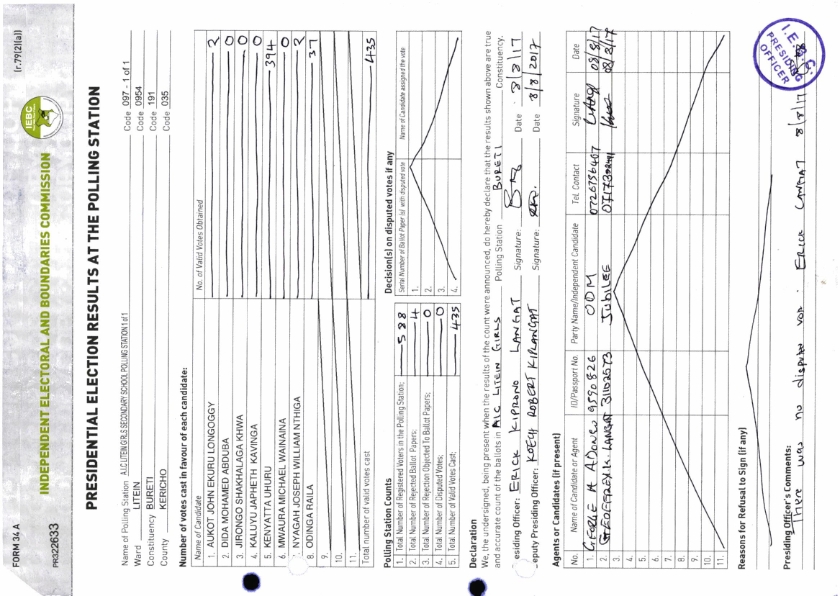 FORM 34 A
(r.79(2)(a))
IEBC
INDEPENDENT ELECTORAL AND BOUNDARIES COMMISSION
PR022633
PRESIDENTIAL ELECTION RESULTS AT THE POLLING STATION
Name of Polling Station A.I.C LITEIN GIRLS SECONDARY SCHOOL POLLING STATION 1 of 1 Code 097 - 1 of 1
Ward LITEIN Code 0954
Constituency BURETI Code 191
County KERICHO Code 035
Number of votes cast in favour of each candidate:
Name of Candidate No. of Valid Votes Obtained
1. AUKOT JOHN EKURU LONGOGGY 2
2. DIDA MOHAMED ABDUBA 0
3. JIRONGO SHAKHALAGA KHWA 0
4. KALUYU JAPHETH KAVINGA 0
5. KENYATTA UHURU 394
6. MWAURA MICHAEL WAINAINA 0
7. NYAGAH JOSEPH WILLIAM NTHIGA 2
8. ODINGA RAILA 37
9.
10.
11.
Total number of valid votes cast 435
Polling Station Counts
1. Total Number of Registered Voters in the Polling Station; 588
2. Total Number of Rejected Ballot Papers; 4
3. Total Number of Rejection Objected To Ballot Papers; 0
4. Total Number of Disputed Votes; 0
5. Total Number of Valid Votes Cast; 435
Decision(s) on disputed votes if any
Serial Number of Ballot Paper (s) with disputed vote Name of Candidate assigned the vote
1.
2.
3.
4.
Declaration
We, the undersigned, being present when the results of the count were announced, do hereby declare that the results shown above are true
and accurate count of the ballots in AIC LITEIN GIRLS Polling Station BURETI Constituency.
esiding Officer: ERICK KIPRONO LANGAT Signature: Date 8/8/17
eputy Presiding Officer: KOECH ROBERT KIPLANGAT Signature: Date 8/8/2017
Agents or Candidates (if present)
No. Name of Candidate or Agent ID/Passport No. Party Name/Independent Candidate Tel. Contact Signature Date
1. GEORGE 9590826 ODM 0726756407 08/8/17
2. GEOFFREY K. LANGAT 31102573 JUBILEE 08/8/17
3.
4.
5.
6.
7.
8.
9.
10.
11.
Reasons for Refusal to Sign (if any)
Presiding Officer's Comments:
There was no dispute vote. ERICK LANGAT 8/8/17
I.E.B.C
PRESIDING
OFFICER